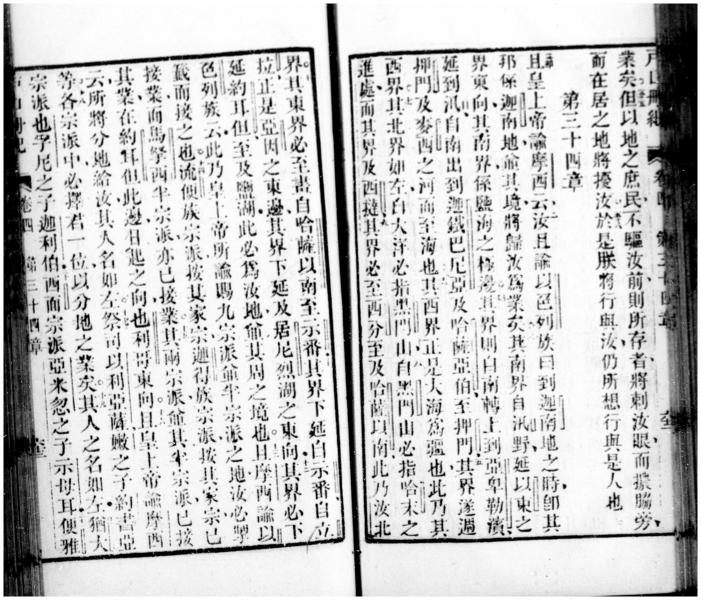 戶口冊紀 卷四 第三十四章
業矣但以地之庶民不驅汝前則所存者將刺汝眼而擄脇旁
而在居之地將擾汝於是朕將行與汝仍所想行與是人也
第三十四章
且皇上帝諭摩西云汝且諭以色列族曰到迦南地之時卽其
耶係迦南地爺其境將歸汝爲業矣其南界自汛野延以東之
界東向其南界係鹽海之極邊其界則自南轉上到亞卑勒濱
延到汛自南出到迦鐵巴尼亞及哈薩亞伯至押門其界遂過
押門及麥西之河而至海也其西界正是大海爲疆也此乃其
西界其北界如左自大洋必指黑門山自黑門山必指哈末之
進處而其界及西撻其界必至西分至及哈薩以南此乃汝北
界其東界必至晝自哈薩以南至示番其界下延自示番自立
拉正是亞因之東邊其界下延及居尼烈湖之東向其界必下
延約耳但至及鹽湖此必爲汝地爺其周之境也且摩西諭以
色列族云此乃皇上帝所諭賜九宗派爺半宗派之地汝必掣
籤而接之也流便族宗派按其家宗迦得族宗派按其家宗已
接業而馬拏西半宗派亦已接業其兩宗派爺其半宗派已接
其業在約耳但此邊日起之向也利哥東向且皇上帝諭摩西
云所將分地給汝其人名如左祭司以利亞薩嫩之子約書亞
等各宗派中必擇君一位以分地之業矣其人之名如左猶大
宗派也孚尼之子迦利伯西面宗派亞米忽之子示母耳便雅
戶口冊紀 卷四 第三十四章